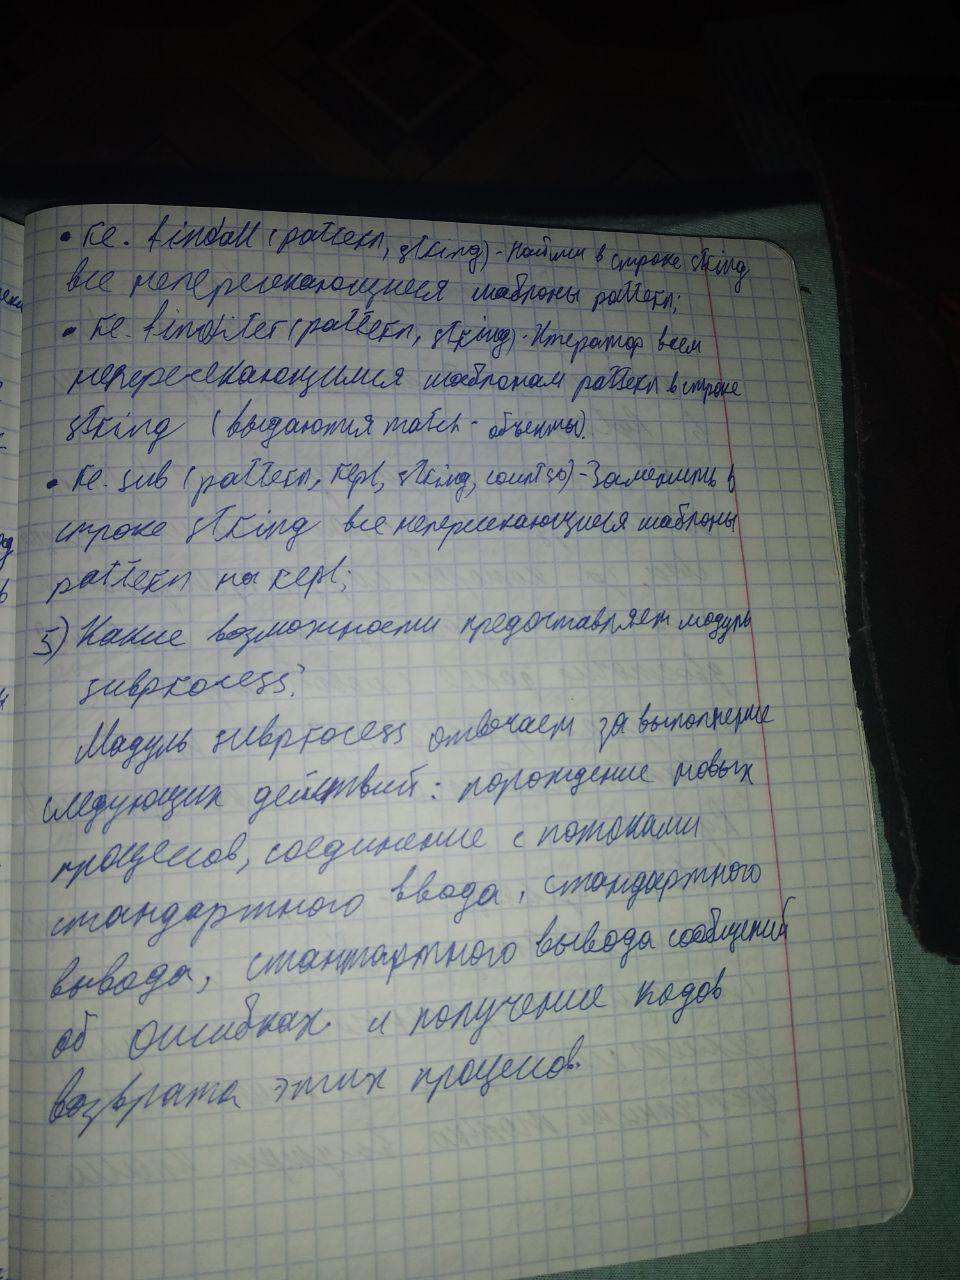 • re. findall (pattern, string) - Найти в строке string
все непересекающиеся шаблоны pattern;
• re. finditer (pattern, string) - Итератор всем
непересекающимся шаблонам pattern в строке
string (выдаются match - объекты).
• re. sub (pattern, repl, string, count=0) - Заменить в
строке string все непересекающиеся шаблоны
pattern на repl;
5) Какие возможности предоставляет модуль
subprocess?
Модуль subprocess отвечает за выполнение
следующих действий: порождение новых
процессов, соединение с потоками
стандартного ввода, стандартного
вывода, стантартного вывода сообщений
об ошибках и получение кодов
возврата этих процессов.